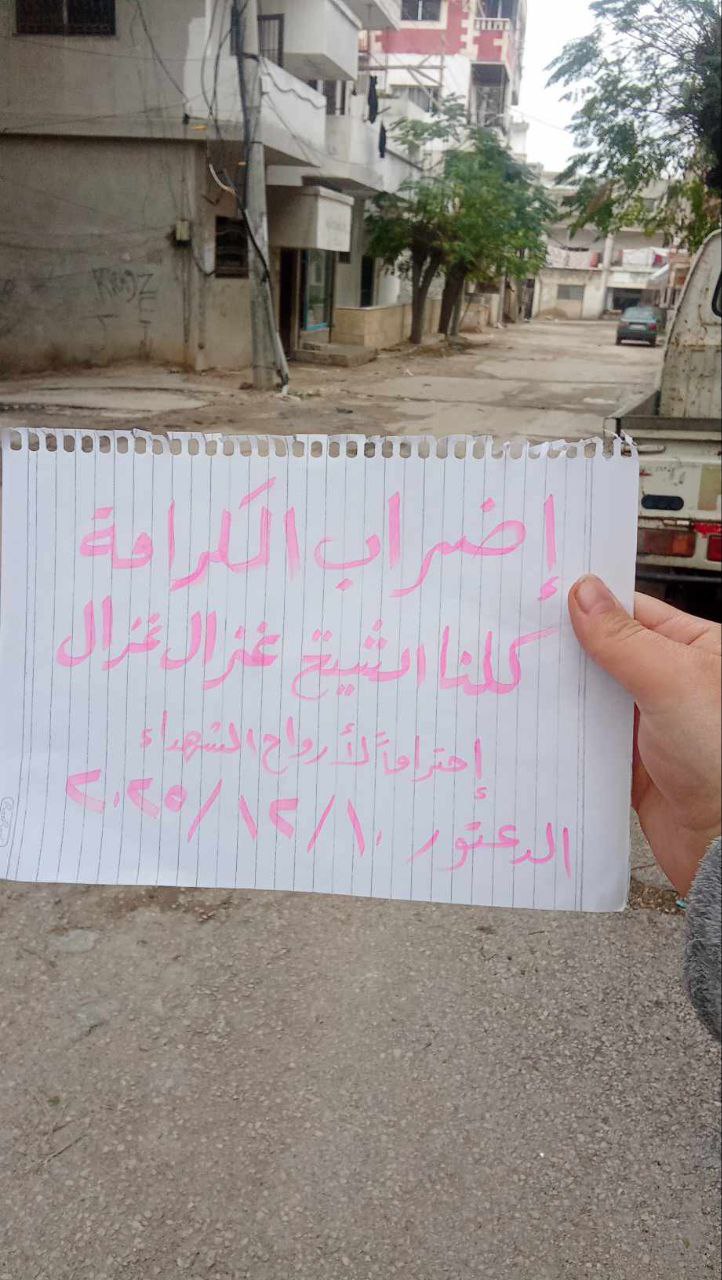 إضراب الكرامة
كلنا الشيخ غزال غزال
إحتراماً لأرواح الشهداء
الدعتور ١٠/١٢/٢٠٢٥